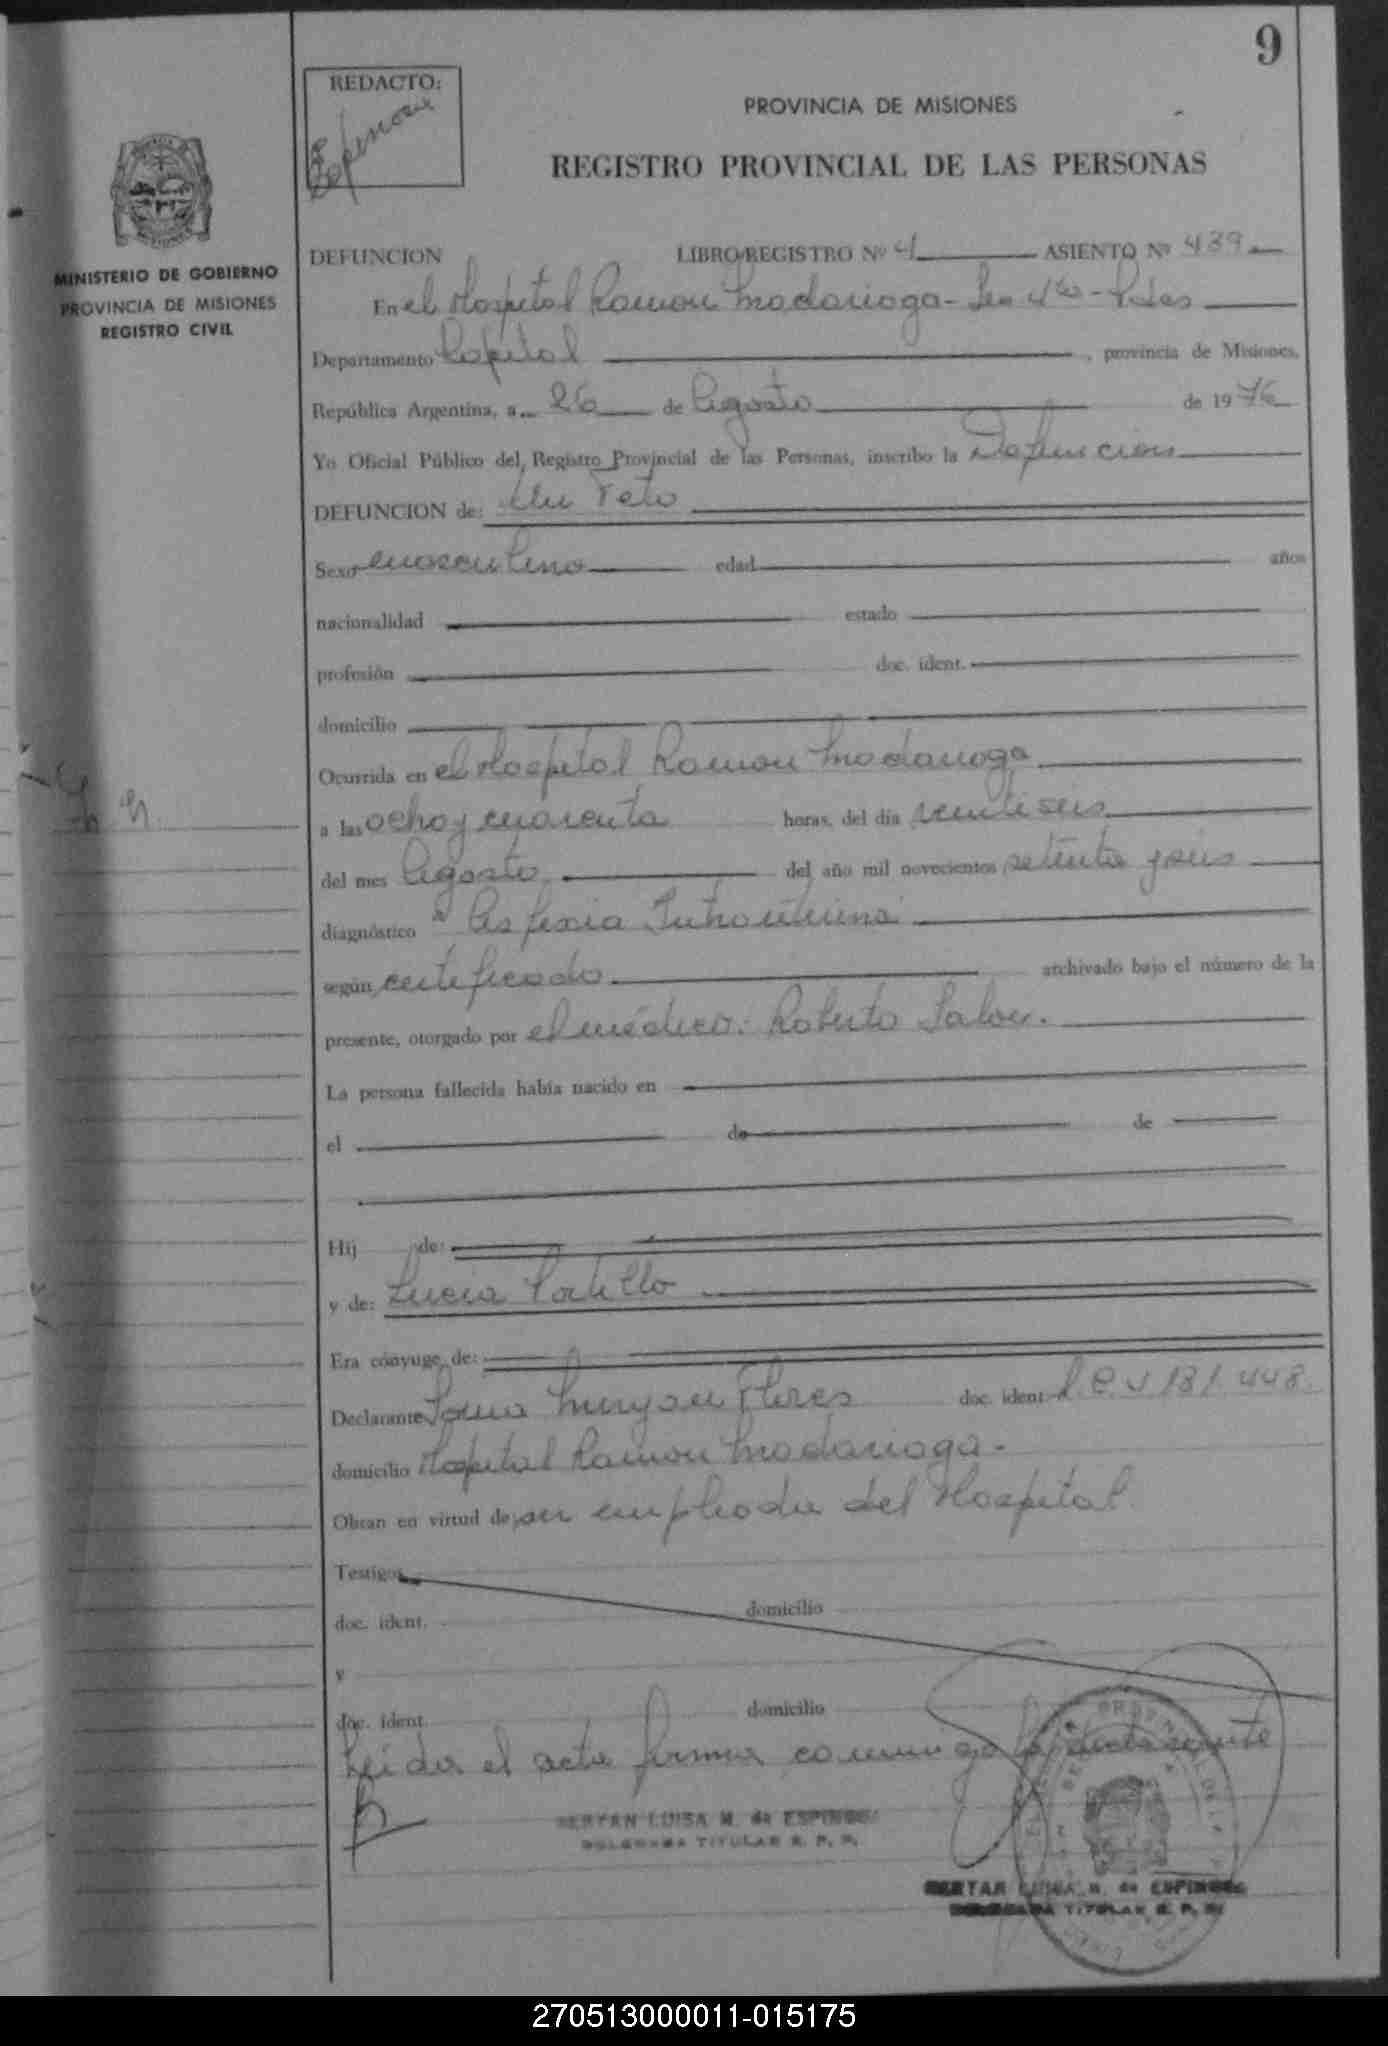 9
REDACTO:
Espinosa
PROVINCIA DE MISIONES
REGISTRO PROVINCIAL DE LAS PERSONAS
MINISTERIO DE GOBIERNO
PROVINCIA DE MISIONES
REGISTRO CIVIL
DEFUNCION LIBRO/REGISTRO Nº 4 ASIENTO Nº 439
En el Hospital Ramon Madariaga - Sec 4ta - Pdas
Departamento Capital, provincia de Misiones,
República Argentina, a 26 de Agosto de 1976
Yo Oficial Público del Registro Provincial de las Personas, inscribo la Defuncion
DEFUNCION de: Un Feto
Sexo masculino edad años
nacionalidad estado
profesión doc. ident.
domicilio
Ocurrida en el Hospital Ramon Madariaga
a las ocho y cuarenta horas, del día veintiseis
del mes Agosto del año mil novecientos setenta y seis
diagnóstico Asfixia Intrauterina
según certificado archivado bajo el número de la
presente, otorgado por el médico: Roberto
La persona fallecida había nacido en
el de de
Hij de:
y de: Lucia Portillo
Era cónyuge de:
Declarante Flores doc. ident. L.C. 181.448
domicilio Hospital Ramon Madariaga.
Obran en virtud de ser empleada del Hospital.
Testigos
doc. ident. domicilio
y
doc. ident. domicilio
Leida el acta firma conmigo la declarante
BERTAN LUISA M. de ESPINOSA
DELEGADA TITULAR R. P. P.
BERTAN LUISA M. de ESPINOSA
DELEGADA TITULAR R. P. P.
270513000011-015175